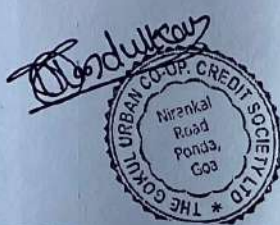 THE GOKUL URBAN CO-UP. CREDIT SOCIETY LTD *
Nirankal
Road
Ponda,
Goa